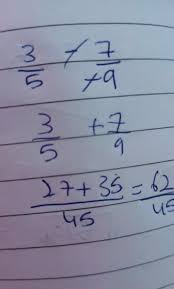 3/5 - 7/-9
3/5 + 7/9
27+35/45 = 62/45